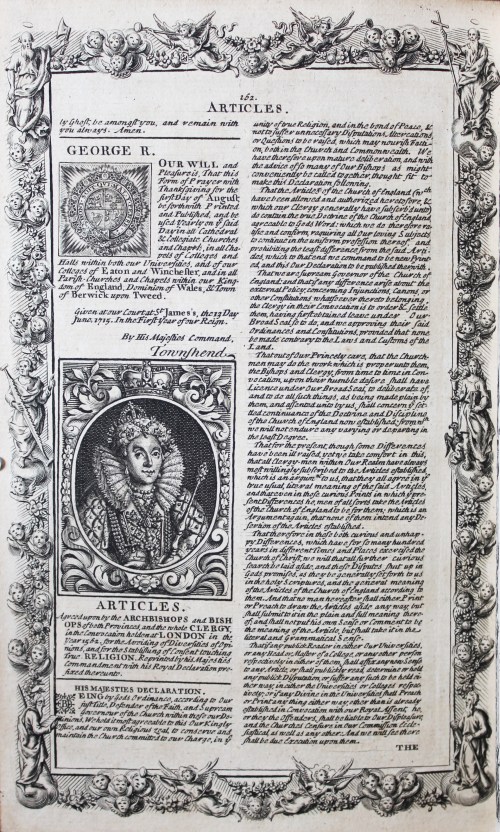 162.
ARTICLES.
ly Ghost, be amongst you, and remain with
you always. Amen.
GEORGE R.
OUR WILL and
Pleasure is, That this
Form of Prayer with
Thanksgiving for the
first Day of August
be forthwith Printed
and Published, and be
used Yearly on ye said
Day in all Cathedral
& Collegiate Churches
and Chapels, in all Cha-
pels of Colleges and
Halls within both our Universities, and of our
Colleges of Eaton and Winchester, and in all
Parish-Churches and Chapels within our King-
dom of England, Dominion of Wales, & Town
of Berwick upon Tweed.
Given at our Court at St. James's, the 13 Day
June, 1715. In the First Year of our Reign.
By His Majesties Command,
Townshend.
ARTICLES.
Agreed upon by the ARCHBISHOPS and BISH
OPS of both Provinces, and the whole CLERGY,
in the Convocation holden at LONDON in the
Year 1562. for the Avoiding of Diversities of Opi-
nions, and for the Stablishing of Consent touching
True RELIGION. Reprinted by his Majesties
Commandment with his Royal Declaration pre-
fixed thereunto.
HIS MAJESTIES DECLARATION.
BEING by God's Ordinance, according to Our
just Title, Defender of the Faith, and Supream
Governour of the Church within these our Do-
minions, We hold it most agreeable to this Our Kingly
Office, and our own Religious zeal, to conserve and
maintain the Church committed to our Charge, in ye
unity of true Religion, and in the bond of Peace, &
not to suffer unnecessary Disputations, Altercations,
or Questions to be raised, which may nourish Facti-
on, both in the Church and Commonwealth. We
have therefore upon mature deliberation, and with
the advice of so many of Our Bishops as might
conveniently be called together, thought fit to
make this Declaration following.
That the Articles of the Church of England (wch
have been allowed and authorized heretofore, &
which our Clergy generally have subscrib'd unto)
do contain the true Doctrine of the Church of England
agreeable to Gods Word: which we do therefore ra-
tifie and confirm, requiring all our loving Subjects
to continue in the uniform profession thereof, and
prohibiting the least difference from the said Arti-
cles, which to that end we command to be new Print-
ed, and this Our Declaration to be published therewith.
That we are supream Governor of the Church of
England: and that if any difference arise about the
external Policy, concerning Injunctions, Canons, or
other Constitutions whatsoever thereto belonging,
the Clergy in their Convocation is to order & settle
them, having first obtained leave under Our
Broad Seal so to do, and we approving their said
Ordinances and Constitutions, provided that none
be made contrary to the Laws and Customs of the
Land.
That out of our Princely care, that the Church-
men may do the work which is proper unto them,
the Bishops and Clergy, from time to time in Con-
vocation, upon their humble desire, shall have
Licence under Our Broad Seal, to deliberate of,
and to do all such things, as being made plain by
them, and assented unto by us, shall concern ye set-
tled continuance of the Doctrine and Discipline
of the Church of England now established; from wch
we will not endure any varying or departing in
the least Degree.
That for the present, though some Differences
have been ill raised, yet we take comfort in this,
that all Clergy-men within Our Realm have always
most willingly subscribed to the Articles established,
which is an argumt. to us, that they all agree in ye
true usual, literal meaning of the said Articles,
and that even in those curious Points in which ye pre-
sent Differences lie, men of all sorts take the Articles
of the Church of England to be for them; which is an
Argument again, that none of them intend any De-
sertion of the Articles established.
That therefore in these both curious and unhap-
py Differences, which have for so many hundred
years in different Times and Places exercised the
Church of Christ, we will that all further curious
search be laid aside, and these Disputes shut up in
Gods promises, as they be generally set forth to us
in the holy Scriptures, and the general meaning
of the Articles of the Church of England according to
them. And that no man hereafter shall either Print,
or Preach to draw the Article aside any way, but
shall submit to it in the plain and full meaning there-
of, and shall not put his own Sense or Comment to be
the meaning of the Article, but shall take it in the
literal and Grammatical Sense.
That if any publick Reader in either Our Universities,
or any Head or Master of a College, or any other person
respectively in either of them, shall affix any new Sense
to any Article, or shall publickly read, determine or hold
any publick Disputation, or suffer any such to be held ei-
ther way, in either the Universities or Colleges respec-
tively; or if any Divine in the Universities shall Preach
or Print any thing either way, other than is already
established in Convocation with our Royal Assent: he
or they the Offenders, shall be liable to Our Displeasure,
and the Churches Censure in Our Commission Eccle-
siastical, as well as any other: And we will see there
shall be due Execution upon them.
THE